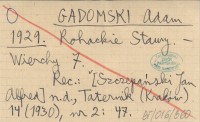 O GADOMSKI Adam
1929. Rohackie Stawy. –
Wierchy 7.
Rec.: [Szczepański Jan
Alfred] n.d., Taternik (Kraków)
14 (1930), nr 2: 47.